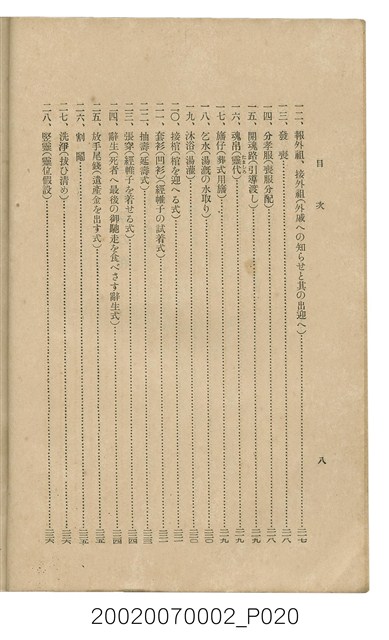 目次
八
一二、報外祖、接外祖(外戚への知らせと其の出迎へ)
一三、發喪
一四、分孝服(喪服分配)
一五、開魂路(引導渡し)
一六、魂帛(靈代)
一七、孝飯(葬式用膳)
一八、乞水(湯灌の水取り)
一九、沐浴(湯灌)
二〇、接棺(棺を迎へる式)
二一、套衫(凹衫)(經帷子の試着式)
二二、抽壽(延壽式)
二三、張穿(經帷子を着せる式)
二四、辭生(死者へ最後の御馳走を食べさす辭生式)
二五、放手尾錢(遺産金を出す式)
二六、割鬮
二七、洗淨(祓ひ清め)
二八、竪靈(靈位假設)
20020070002_P020